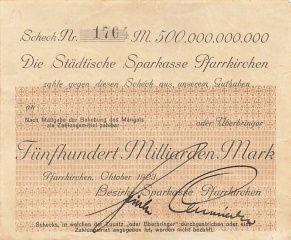 Scheck Nr. 1764 M. 500,000,000,000
Die Städtische Sparkasse Pfarrkirchen
zahle gegen diesen Scheck aus unserem Guthaben
an
Nach Maßgabe der Behebung des Mangels
als Zahlungsmittel zahlbar oder Überbringer
Fünfhundert Milliarden Mark
Pfarrkirchen, Oktober 1923.
Bezirks-Sparkasse Pfarrkirchen
Schecks, in welchen der Zusatz „oder Überbringer" durchgestrichen oder eine
Zahlungsfrist angegeben ist, werden nicht bezahlt.